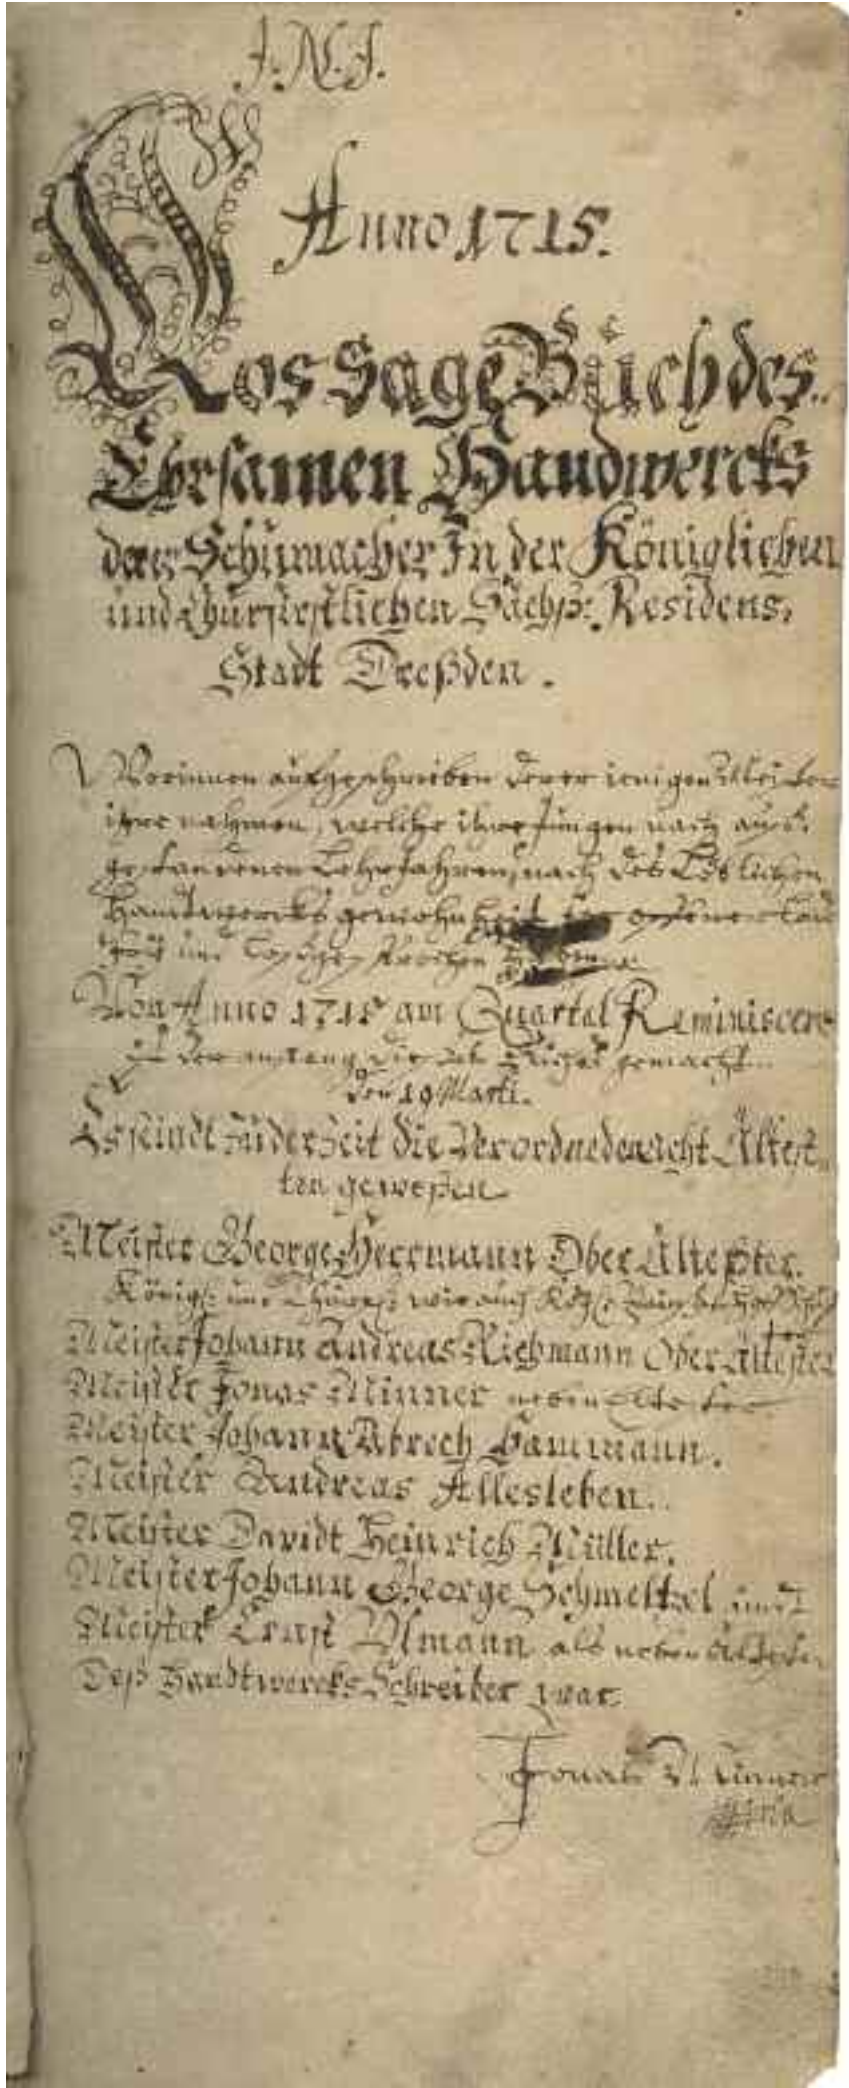 J. N. J.
Anno 1715.
Lossage Büch des
Ehrsamen Handwercks
derer Schumacher In der Königlichen
und Churfürstlichen Sächß: Residens,
Stadt Dreßden.
Worinnen aufgeschrieben derer ienigen Meister
ihre nahmen, welche ihre Jungen nach auß,
gestandenen Lehrjahren, nach des Löblichen
Handtwercks gewohnheit offener
und
Von Anno 1715 am Quartal Reminiscere
ist der anfang dieses Buches gemacht
den 19 Marti.
Es seindt zu der Zeit die Verordneden acht Ältest,
ten geweßen
Meister George Herrmann Ober Älteßter.
Königl: und Churfl: wie auch
Meister Johann Andreas Richmann Ober Ältester
Meister Jonas Minner neben Eltester
Meister Johann Abrech Hammann.
Meister Andreas Allesleben.
Meister Davidt Heinrich Müller.
Meister Johann George Schmeltzel und
Meister Ernst Ulmann als neben Ältester
Deß Handtwercks Schreiber war
Jonas Minner